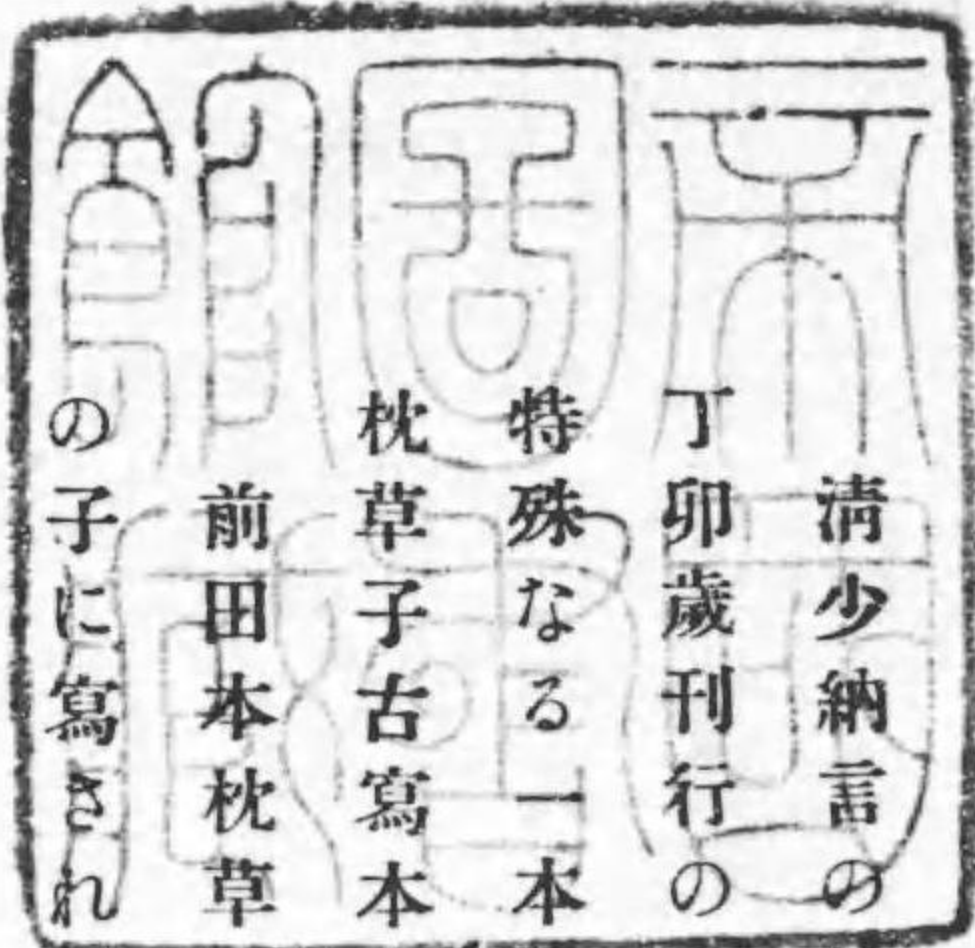 清少納言の
丁卯歲刊行の
特殊なる一本
枕草子古寫本
前田本枕草
の子に寫され
帝
圖
館